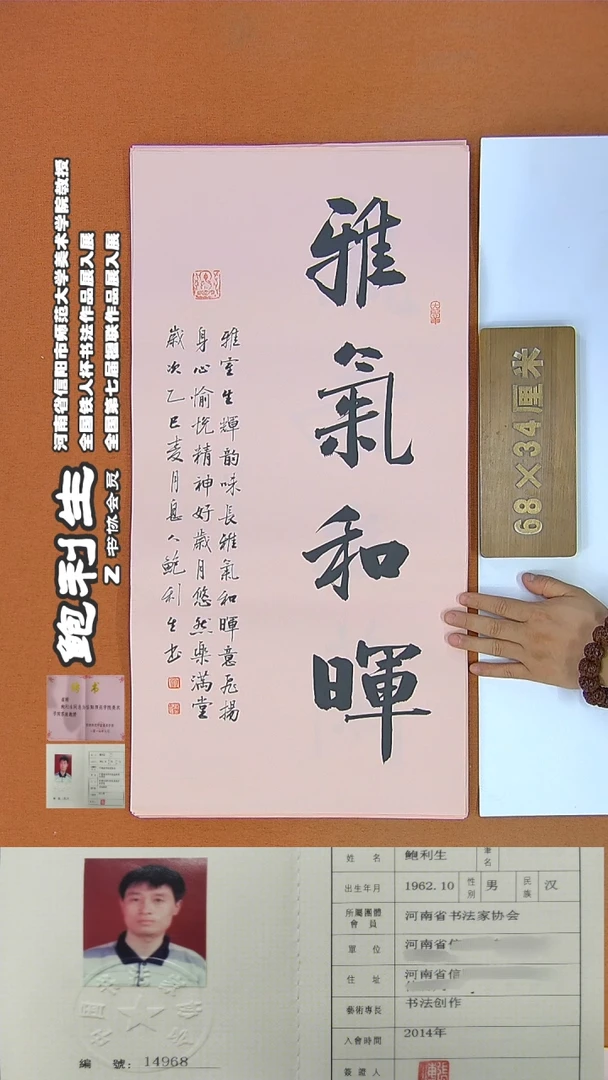 雅氣和暉
雅室生輝韵味長雅氣和暉意飛揚
身心愉悅精神好歲月悠然樂滿堂
歲次乙巳麦月息人鲍利生书
68×34厘米
河南省信阳市师范大学美术学院教授
全国铁人杯书法作品展入展
全国第七届楹联作品展入展
鲍利生
Z 书协会员
聘书
姓 名 鲍利生 筆名
出生年月 1962.10 性别 男 民族 汉
所屬團體會員 河南省书法家协会
單 位 河南省信
住 址 河南省信
藝術專長 书法创作
入會時間 2014年
簽證人
編 號: 14968